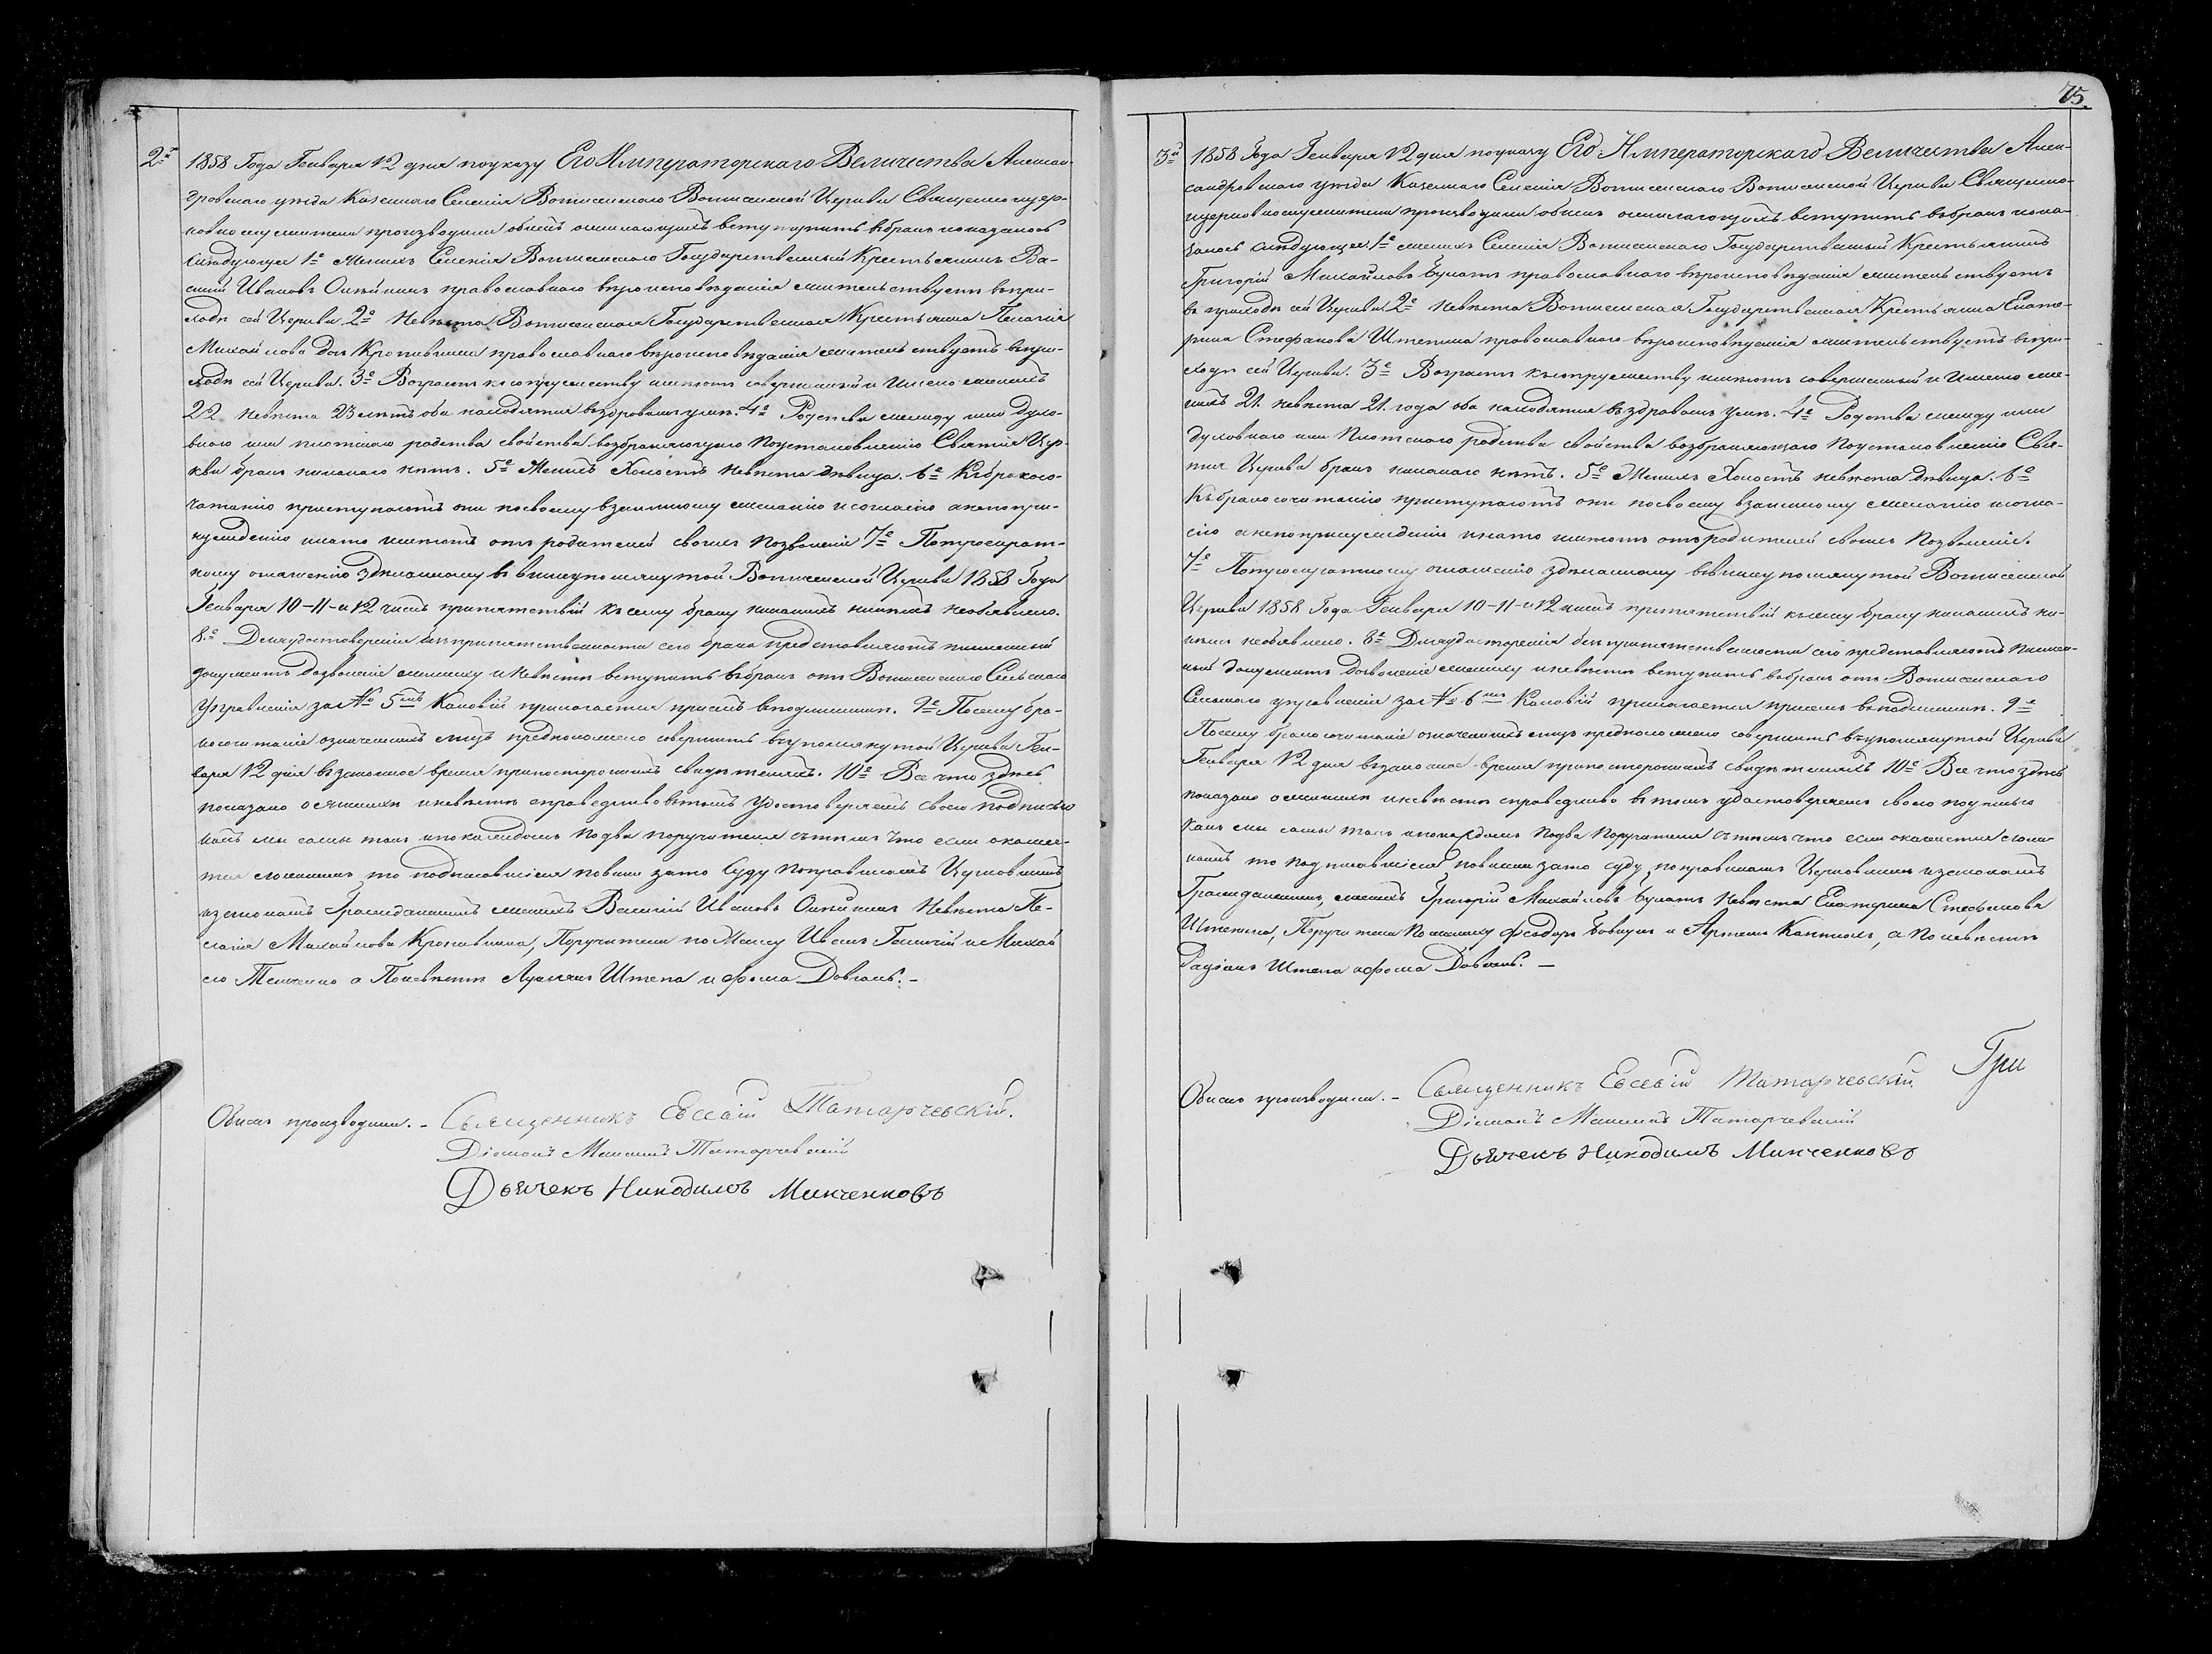 2й
1858 Года Генваря 12 дня по указу Его Императорскаго Величества Алексан-
дровскаго уезда Казеннаго Селенія Волшенскаго Волшенской Церкви Священноцер-
ковнослужители производили обыскъ о желающихъ вступить въ бракъ и оказалось
следующее 1е Женихъ Селенія Государственный Крестьянинъ Ва-
силий Ивановъ православнаго вероисповеданія жительствуетъ въ при-
ходе сей Церкви 2е Невеста Государственная Крестьянка Пелагія
Михайлова православнаго вероисповеданія жительствуетъ въ при-
ходе сей Церкви. 3е Возрастъ къ супружеству имеютъ совершенный и именно женихъ
22 Невеста 23 летъ оба находятся въ здравомъ уме. 4е Родства между ими духо-
внаго или плотскаго родства свойства возбраняющаго по установленію Святыя Цер-
кви бракъ никакого нетъ. 5е Женихъ Холостъ невеста девица. 6е Къ бракосо-
четанію приступаютъ они по своему взаимному желанію и согласію а не по при-
нужденію и на то имеютъ отъ родителей своихъ позволеніе 7е По троекрат-
ному оглашенію зделанному въ вышеупомянутой Церкви 1858 Года
Генваря 10-11-и 12 числъ препятствій къ сему браку никакихъ никемъ необъявлено.
8е Для удостоверенія безпрепятственности сего брака представляютъ письменный
документъ дозволеніе жениху и невесте вступить въ бракъ отъ Сельскаго
Управленія за № 5мъ Каковый прилагается при семъ въ подлиннике. 9е Посему бра-
косочетаніе означенныхъ лицъ предположено совершить въ упомянутой Церкви Ген-
варя 12 дня въ законное время при постороннихъ свидетеляхъ. 10е Все что здесь
показано о женихе и невесте справедливо въ томъ удостоверяемъ своею подписью
какъ мы сами такъ и по каждомъ по два поручителя съ темъ что если окаже-
тся ложнымъ то подписавшіеся повинны за то Суду по правиламъ Церковнымъ
и законамъ Гражданскимъ женихъ Василій Ивановъ Невеста Пе-
лагія Михайлова Поручители по Жениху Иванъ и Михай
ло а По невесте Штепа и Фома Довгаль. -
Обыскъ производили. - Священникъ Евсевій Татарчевскій.
Діаконъ Татарчевскій
Дьячекъ Никодимъ Минченковъ
75.
3й
1858 Года Генваря 12 дня по указу Его Императорскаго Величества Алек-
сандровскаго уезда Казеннаго Селенія Волшенскаго Волшенской Церкви Священно-
церковнослужители производили обыскъ о желающихъ вступить въ бракъ и ока-
залось следующее 1е женихъ Селенія Государственный Крестьянинъ
Григорій Михайловъ православнаго вероисповеданія жительствуетъ
въ приходе сей Церкви 2е Невеста Государственная Крестьянка Екате-
рина Стефанова Штепина православнаго вероисповеданія жительствуетъ въ при-
ходе сей Церкви. 3е Возрастъ къ супружеству имеютъ совершенный и именно же-
нихъ 21. невеста 21. года оба находятся въ здравомъ уме. 4е Родства между ими
духовнаго или плотскаго родства свойства возбраняющаго по установленію Свя-
тыя Церкви бракъ никакого нетъ. 5е Женихъ Холостъ невеста девица. 6е
Къ бракосочетанію приступаютъ они по своему взаимному желанію и согла-
сію а не по принужденію и на то имеютъ отъ родителей своихъ позволеніе.
7е По троекратному оглашенію зделанному въ вышеупомянутой
Церкви 1858 Года Генваря 10-11-и 12 числъ препятствій къ сему браку никакихъ ни-
кемъ необъявлено. 8е Для удостоверенія безпрепятственности сего представляютъ письмен-
ный документъ дозволеніе жениху и невесте вступить въ бракъ отъ
Сельскаго управленія за № 6мъ Каковый прилагается при семъ въ подлиннике. 9е
Посему бракосочетаніе означенныхъ лицъ предположено совершить въ упомянутой Церкви
Генваря 12 дня въ законное время при постороннихъ свидетеляхъ 10е Все что здесь
показано о женихе и невесте справедливо въ томъ удостоверяемъ своею подписью
какъ мы сами такъ и по каждомъ по два поручителя съ темъ что если окажется лож-
нымъ то подписавшіеся повинны за то суду по правиламъ Церковнымъ и законамъ
Гражданскимъ, женихъ Григорій Михайловъ Невеста Екатерина Стефанова
Штепина, Поручители По жениху Федоръ и Артемъ а По невесте
Штепа и Фома Довгаль. -
Обыскъ производили. - Священникъ Евсевій Татарчевскій. Гри
Діаконъ Татарчевскій
Дьячекъ Никодимъ Минченковъ